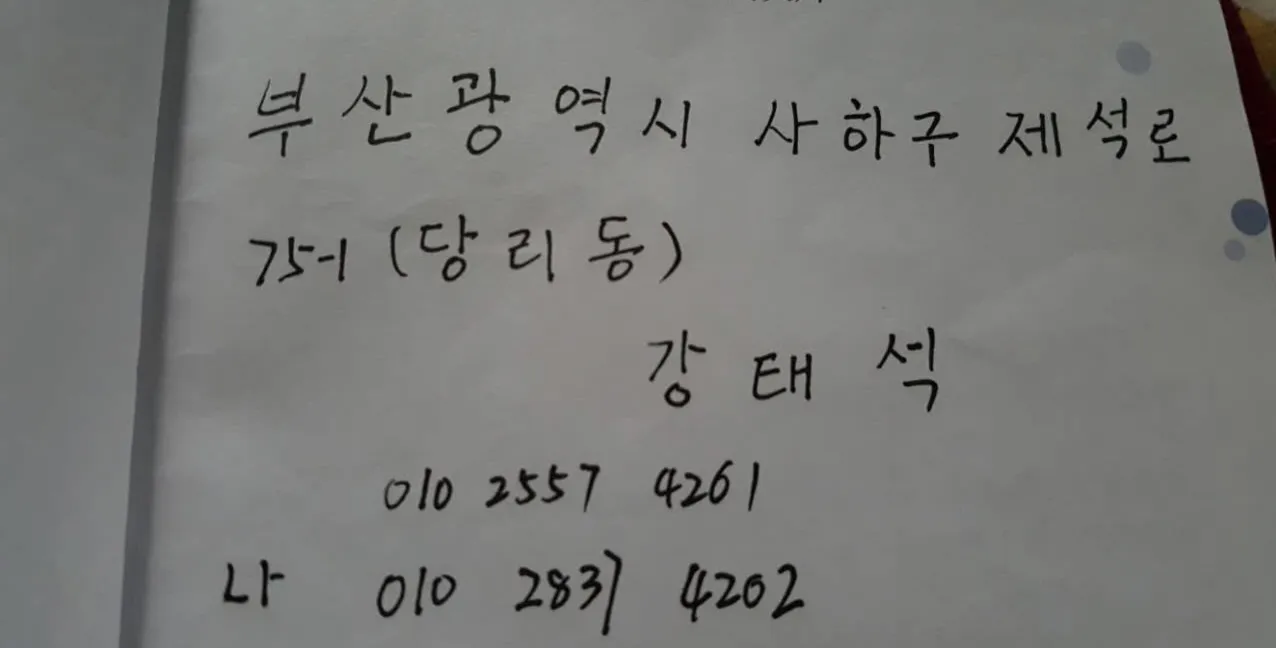 부산광역시 사하구 제석로
75-1 (당리동)
강태석
010 2557 4261
나 010 2837 4202